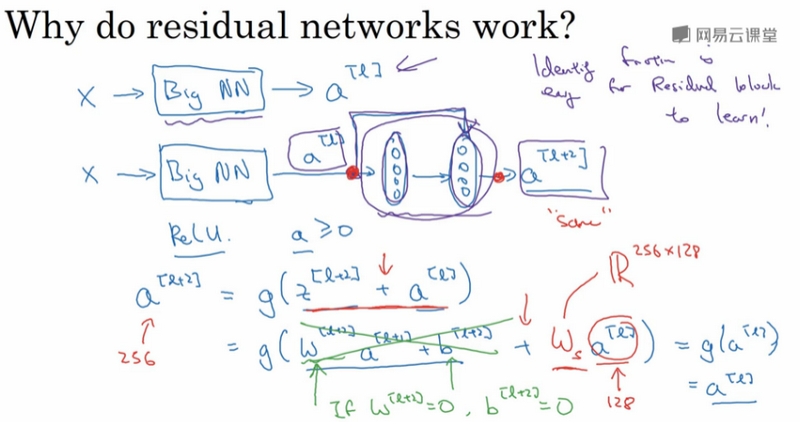 Why do residual networks work?
网易云课堂
X → Big NN → a^[l]
Identity function is
easy for Residual block
to learn!
X → Big NN → a^[l] → → a^[l+2]
"Same"
ReLU. a ≥ 0
ℝ^256×128
a^[l+2] = g(z^[l+2] + a^[l])
256
= g(W^[l+2] a^[l+1] + b^[l+2] + W_s a^[l]) = g(a^[l])
= a^[l]
128
If W^[l+2] = 0, b^[l+2] = 0